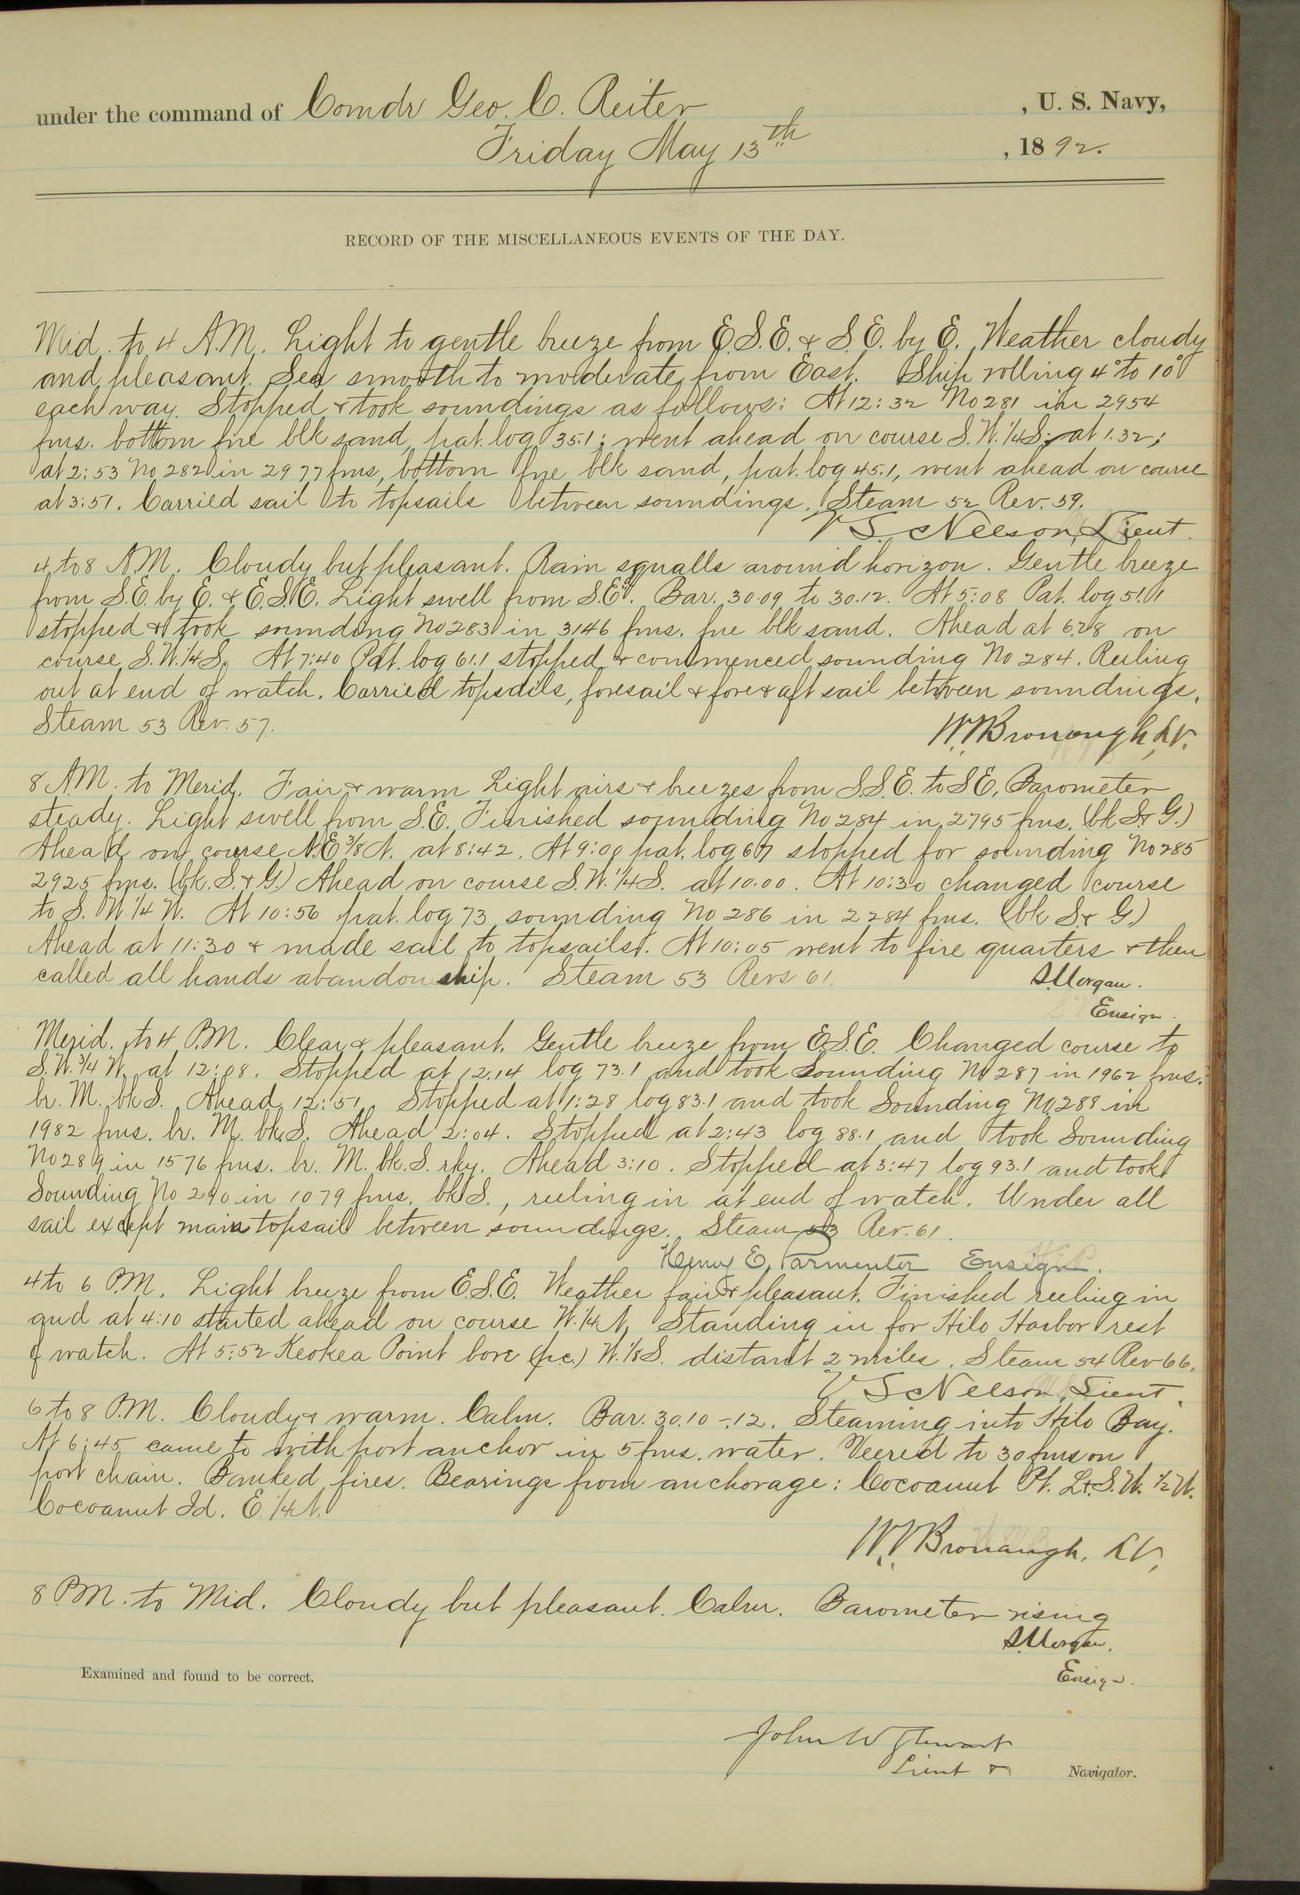 under the command of Comdr Geo. C. Reiter , U. S. Navy,
Friday May 13th , 1892.
RECORD OF THE MISCELLANEOUS EVENTS OF THE DAY.
Mid. to 4 A.M. Light to gentle breeze from E.S.E. & S.E. by E. Weather cloudy
and pleasant. Sea smooth to moderate from East. Ship rolling 4° to 10°
each way. Stopped & took soundings as follows: At 12:32 No 281 in 2954
fms. bottom fne blk sand, pat. log 35.1; went ahead on course S.W. 1/4 S. at 1.32;
at 2:53 No 282 in 2977 fms, bottom fne blk sand, pat. log 45.1, went ahead on course
at 3:51. Carried sail to topsails between soundings. Steam 52 Rev. 59.
V S Nelson, Lieut.
4 to 8 A.M. Cloudy but pleasant. Rain squalls around horizon. Gentle breeze
from S.E. by E. & E.S.E. Light swell from S.E. Bar. 30.09 to 30.12. At 5:08 Pat. log 51.1
stopped & took sounding No 283 in 3146 fms. fne blk sand. Ahead at 6:28 on
course S.W. 1/4 S. At 7:40 Pat. log 61.1 stopped & commenced sounding No 284. Reeling
out at end of watch. Carried topsails, foresail & fore & aft sail between soundings.
Steam 53 Rev. 57.
W. Bronaugh, Lt.
8 A.M. to Merid. Fair & warm Light airs & breezes from S.S.E. to S.E. Barometer
steady. Light swell from S.E. Finished sounding No 284 in 2795 fms. (bk S & G.)
Ahead on course N.E 3/8 N. at 8:42. At 9:08 pat. log 67 stopped for sounding No 285
2925 fms. (bk. S. & G.) Ahead on course S.W. 1/4 S. at 10.00. At 10:30 changed course
to S. W 1/4 W. At 10:56 pat. log 73 sounding No 286 in 2284 fms. (bk S & G.)
Ahead at 11:30 & made sail to topsails. At 10:05 went to fire quarters & then
called all hands abandon ship. Steam 53 Revs 61.
S. Morgan.
Ensign.
Merid. to 4 P.M. Clear & pleasant. Gentle breeze from E.S.E. Changed course to
S.W. 3/4 W. at 12:08. Stopped at 12.14 log 73.1 and took sounding No 287 in 1962 fms.
br. M. bk S. Ahead 12:51. Stopped at 1:28 log 83.1 and took Sounding No 288 in
1982 fms. br. M. bk S. Ahead 2:04. Stopped at 2:43 log 88.1 and took Sounding
No 289 in 1576 fms. br. M. bk. S. rky. Ahead 3:10. Stopped at 3:47 log 93.1 and took
Sounding No 290 in 1079 fms. bk S., reeling in at end of watch. Under all
sail except main topsail between soundings. Steam 53 Rev. 61.
Henry E. Parmenter Ensign.
4 to 6 P.M. Light breeze from E.S.E. Weather fair & pleasant. Finished reeling in
and at 4:10 started ahead on course W. 1/4 N. Standing in for Hilo Harbor rest
of watch. At 5:52 Keokea Point bore (p.c.) W. 1/8 S. distant 2 miles. Steam 54 Rev 66.
V S Nelson, Lieut.
6 to 8 P.M. Cloudy & warm. Calm. Bar. 30.10 - .12. Steaming into Hilo Bay.
At 6:45 came to with port anchor in 5 fms. water. Veered to 30 fms on
port chain. Banked fires. Bearings from anchorage: Cocoanut Pt. Lt. S.W. 1/2 W.
Cocoanut Id. E 1/4 N.
W. Bronaugh, Lt.
8 P.M. to Mid. Cloudy but pleasant. Calm. Barometer rising
S. Morgan.
Ensign.
Examined and found to be correct.
John W Stewart
Lieut & Navigator.